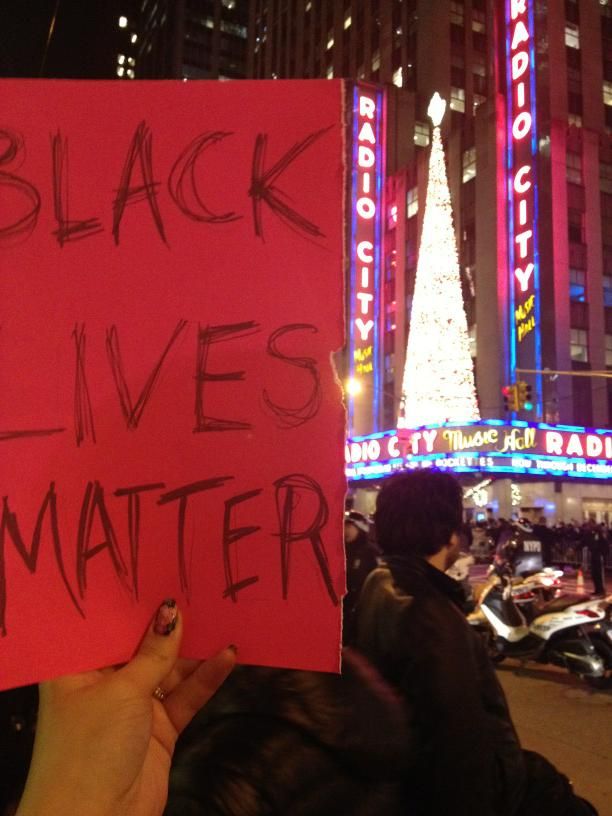 BLACK
LIVES
MATTER
RADIO CITY
MUSIC HALL
RADIO CITY
MUSIC HALL
RADIO CITY Music Hall RADI
ROCKETTES NOW THROUGH DECEM
NYPD